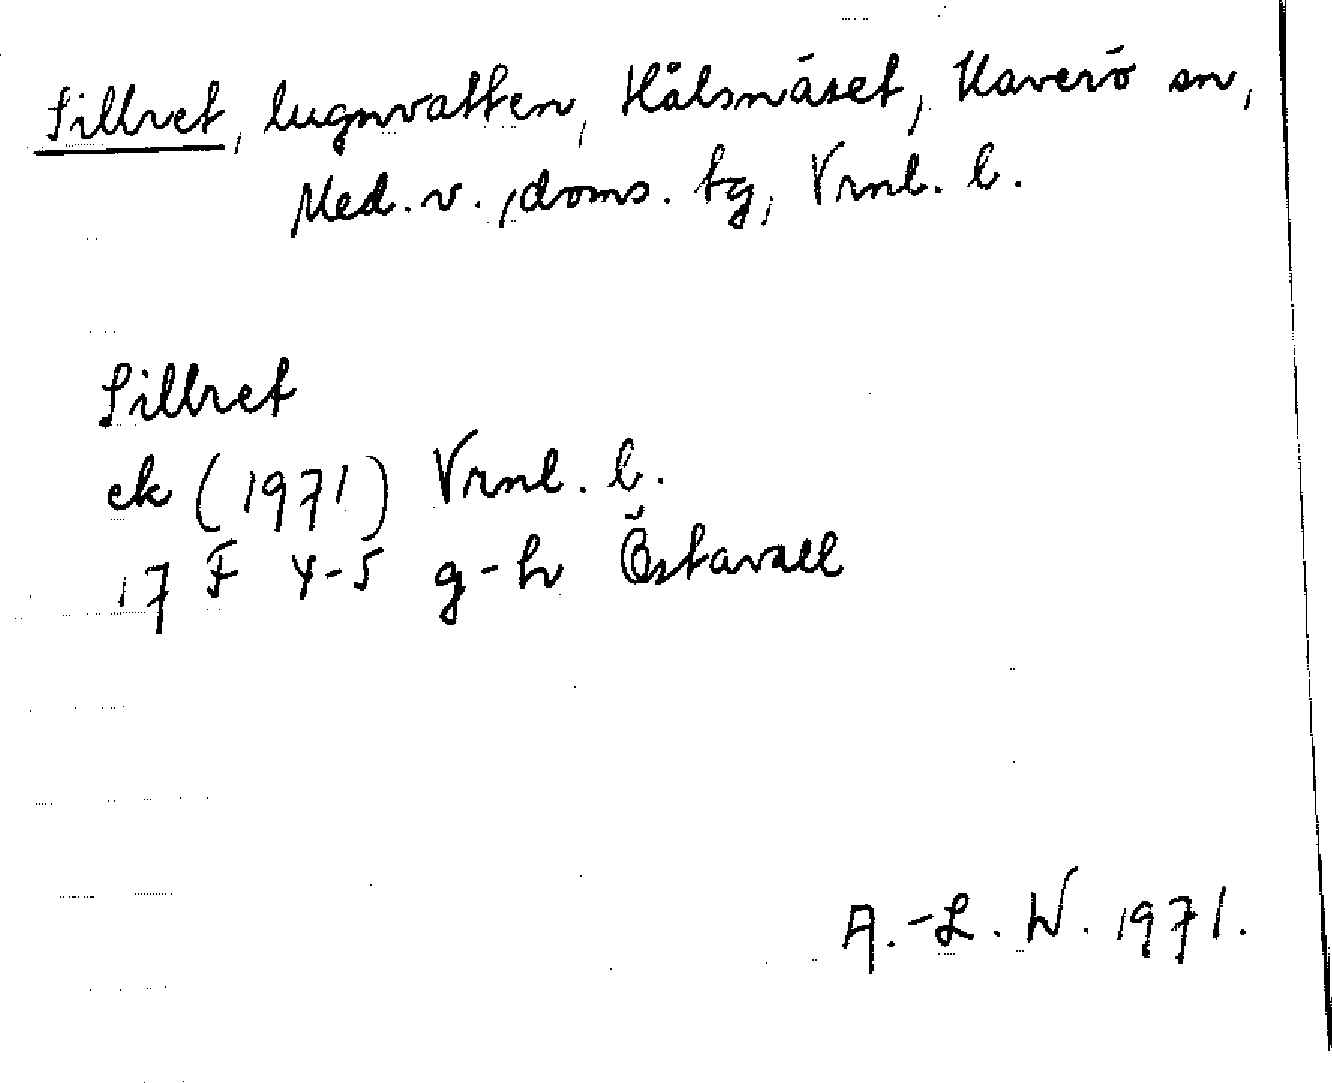 Sillret, lugnvatten, Hålsnäset, Haverö sn,
Med. v., doms. tg, Vrnl. l.
Sillret
ek (1971) Vrnl. l.
17 F 4-5 g-h Östavall
A.-L. W. 1971.